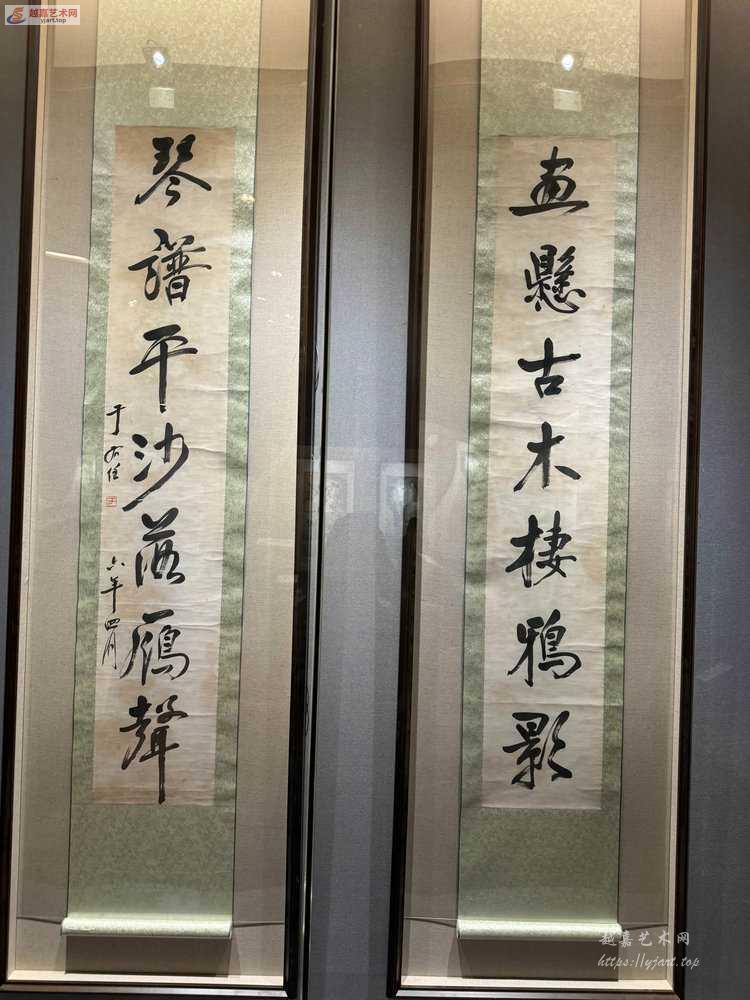 越嘉艺术网
yjart.top
畫懸古木棲鴉影
琴譜平沙落鴈聲
于右任
六年四月
越嘉艺术网
https://yjart.top